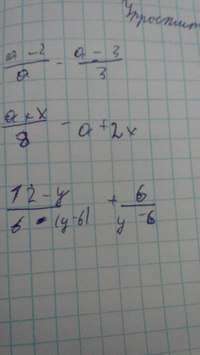 Упростит
(a - 2)/a - (a - 3)/3
(a + x)/8 - a + 2x
(12 - y)/(6 · (y-6)) + 6/(y - 6)